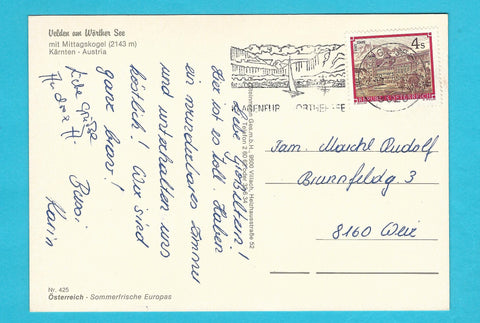 Velden am Wörther See
mit Mittagskogel (2143 m)
Kärnten - Austria
Liebe Großeltern!
Hier ist es toll. Haben
ein wunderbares Zimmer
und unterhalten uns
köstlich! Wir sind
ganz brav!
Bussi
Karin
Liebe Grüße
4 S
REPUBLIK ÖSTERREICH
9500 Villach
Fam. Maichl Rudolf
Brunnfeldg. 3
8160 Weiz
Nr. 425
Österreich - Sommerfrische Europas